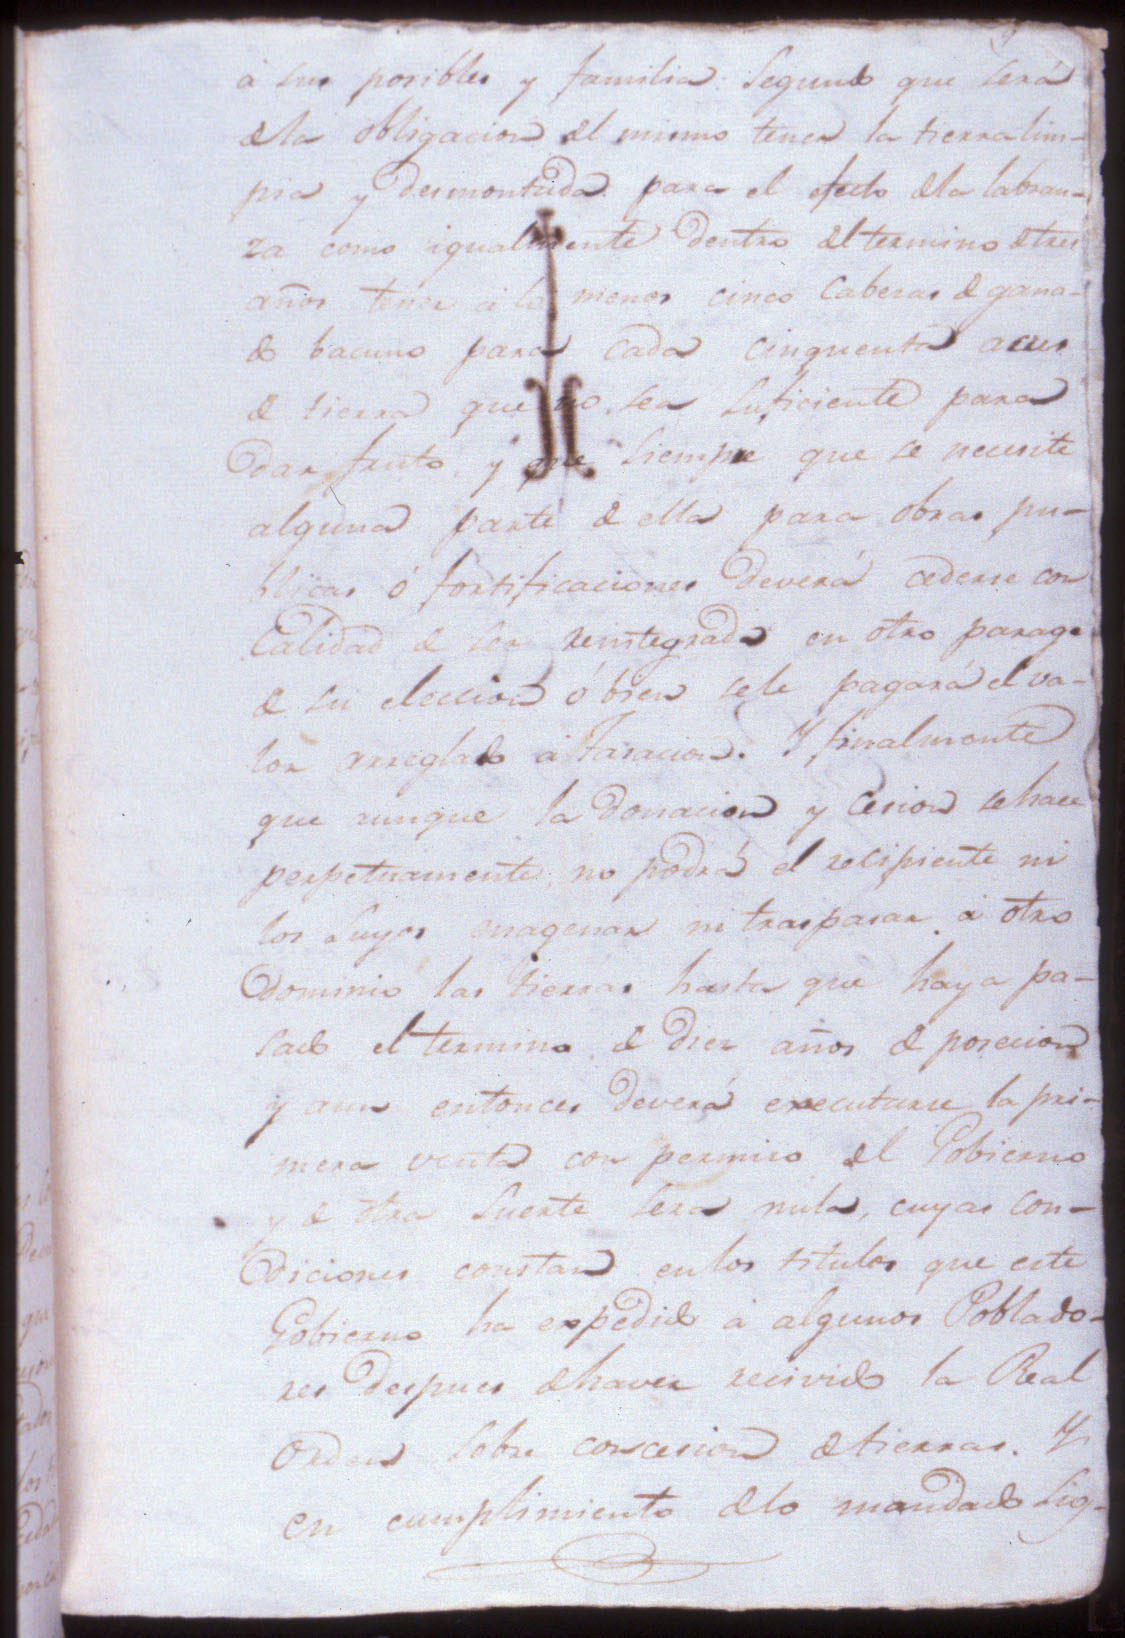 à sus posibles y familia: Segundo que será
de la obligacion del mismo tener la tierra lim-
pia y desmontada para el efecto de la labran-
za como igualmente dentro del termino de tres
años tener à lo menos cinco Cabezas de gana-
do bacuno para cada cinquenta acres
de tierra que no sea Suficiente para
dar fruto, y que Siempre que se necesite
alguna parte de ella para obras pu-
blicas ó fortificaciones deverá cederse con
Calidad de ser reintegrado en otro parage
de su eleccion ó bien sele pagará el va-
lor arreglado à Tasacion. Y finalmente
que aunque la Donacion y Cesion se hace
perpetuamente, no podrá el recipiente ni
los Suyos enagenar ni traspasar à otro
Dominio las tierras hasta que haya pa-
sado el termino de Diez años de posecion
y aun entonces deverá executarse la pri-
mera venta con permiso del Gobierno
y de otra Suerte sera nula, cuyas Con-
diciones constan en los titulos que este
Gobierno ha expedido à algunos Poblado-
res Despues de haver recivido la Real
Orden Sobre concesion de tierras. Y
en cumplimiento de lo mandado Sig-